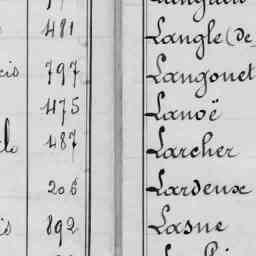 481 Langle (de
cis 797 Langonet
475 Lanoë
487 Larcher
206 Lardeux
is 892 Lasne